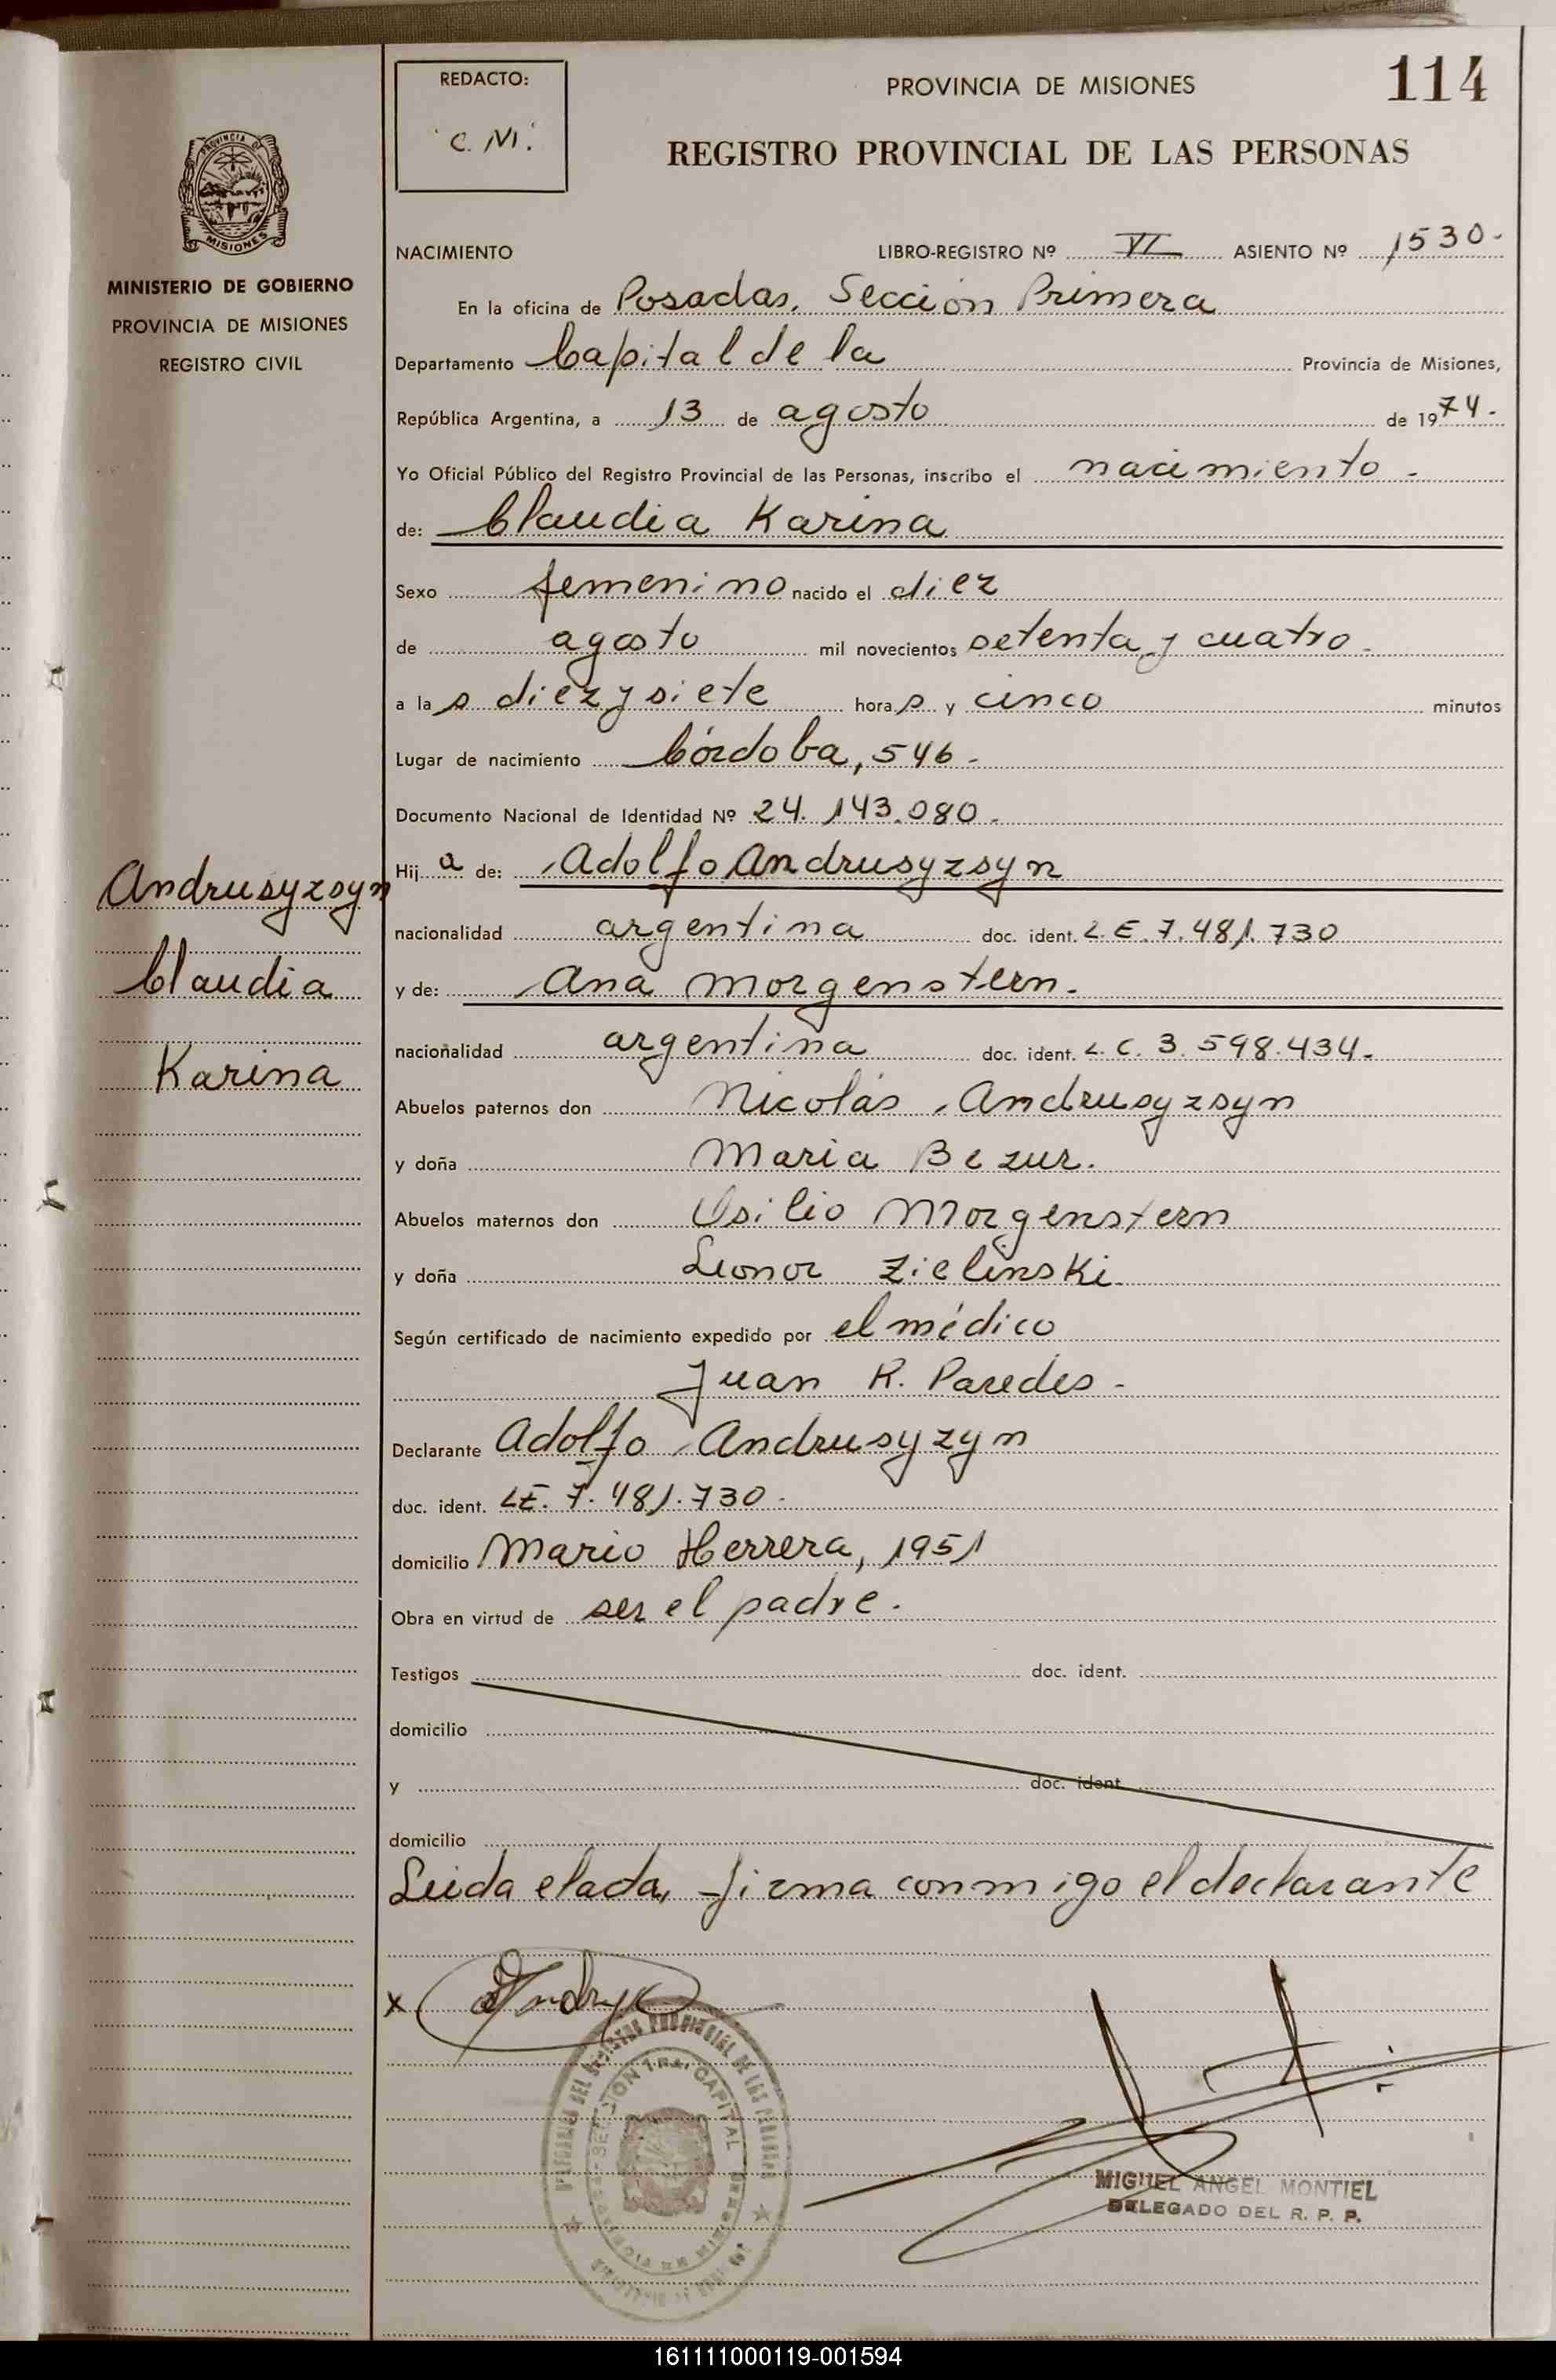 REDACTO:
C. M.
PROVINCIA DE MISIONES
114
REGISTRO PROVINCIAL DE LAS PERSONAS
PROVINCIA DE
MISIONES
MINISTERIO DE GOBIERNO
PROVINCIA DE MISIONES
REGISTRO CIVIL
NACIMIENTO LIBRO-REGISTRO Nº VI ASIENTO Nº 1530.
En la oficina de Posadas, Sección Primera
Departamento Capital de la Provincia de Misiones,
República Argentina, a 13 de agosto de 1974.
Yo Oficial Público del Registro Provincial de las Personas, inscribo el nacimiento.
de: Claudia Karina
Sexo femenino nacido el diez
de agosto mil novecientos setenta y cuatro.
a las diez y siete horas y cinco minutos
Lugar de nacimiento Córdoba, 546.
Documento Nacional de Identidad Nº 24.143.080.
Hija de: Adolfo Andrusyzsyn
nacionalidad argentina doc. ident. L.E. 7.481.730
y de: Ana Morgenstern.
nacionalidad argentina doc. ident. L.C. 3.598.434.
Abuelos paternos don Nicolás Andrusyzsyn
y doña Maria Bezur.
Abuelos maternos don Osilio Morgenstern
y doña Leonor Zielinski.
Según certificado de nacimiento expedido por el médico
Juan R. Paredes.
Declarante Adolfo Andrusyzyn
doc. ident. LE. 7.481.730.
domicilio Mario Herrera, 1951
Obra en virtud de ser el padre.
Testigos doc. ident.
domicilio
y doc. ident.
domicilio
Leida el acta, firma conmigo el declarante
Andrusyzsyn
Claudia
Karina
x
SECCION 1ra. CAPITAL
MIGUEL ANGEL MONTIEL
DELEGADO DEL R. P. P.
161111000119-001594